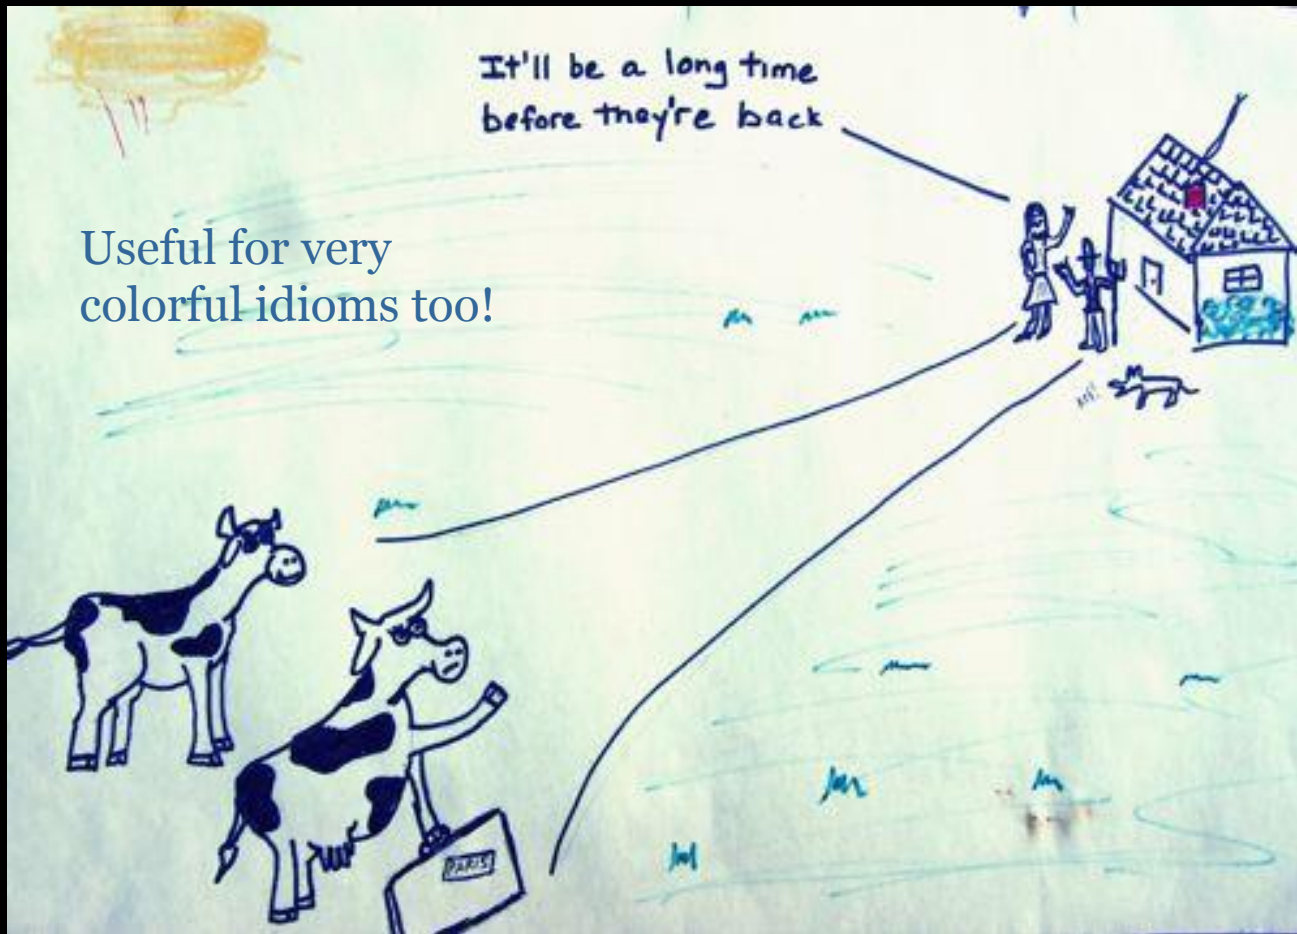 It'll be a long time
before they're back
Useful for very
colorful idioms too!
arf!
PARIS